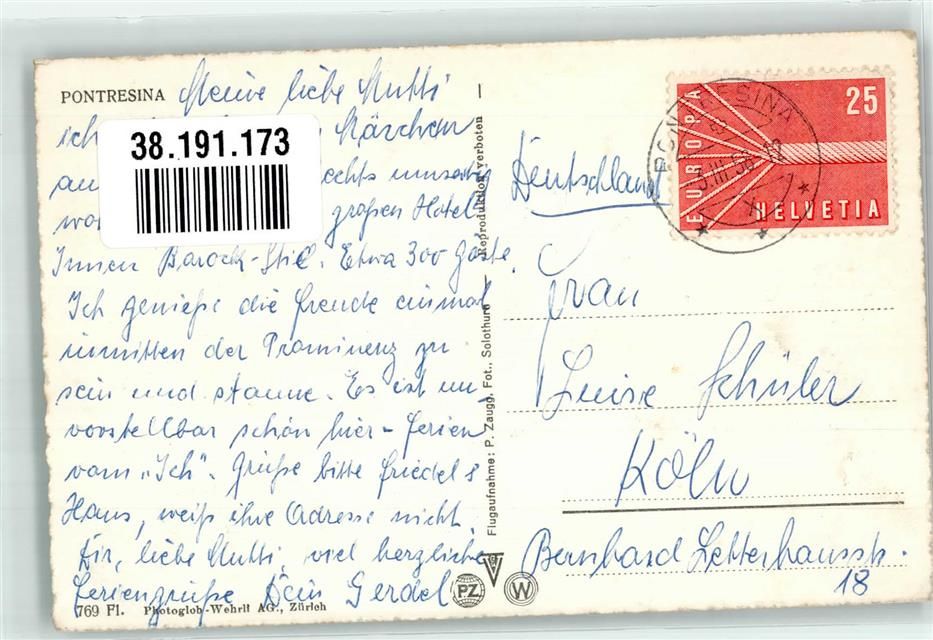 PONTRESINA Meine liebe Mutti
ich Märchen
38.191.173
rechts umseitig
großen Hotel
Innen Barock-Stil. Etwa 300 Gäste.
Ich genieße die Freude einmal
inmitten der Prominenz zu
sein und staune. Es ist un
vorstellbar schön hier - Ferien
vom "Ich". Grüße bitte Friedel &
Hans, weiß ihre Adresse nicht.
Dir, liebe Mutti, viel herzliche
Feriengrüße Dein Gerdel
769 Fl. Photoglob-Wehrli AG., Zürich
Flugaufnahme: P. Zaugg, Fot., Solothurn — Reproduktion verboten
PZ W
EUROPA
25
HELVETIA
PONTRESINA
Deutschland
Frau
Luise Schüler
Köln
Bernhard Letterhausstr.
18